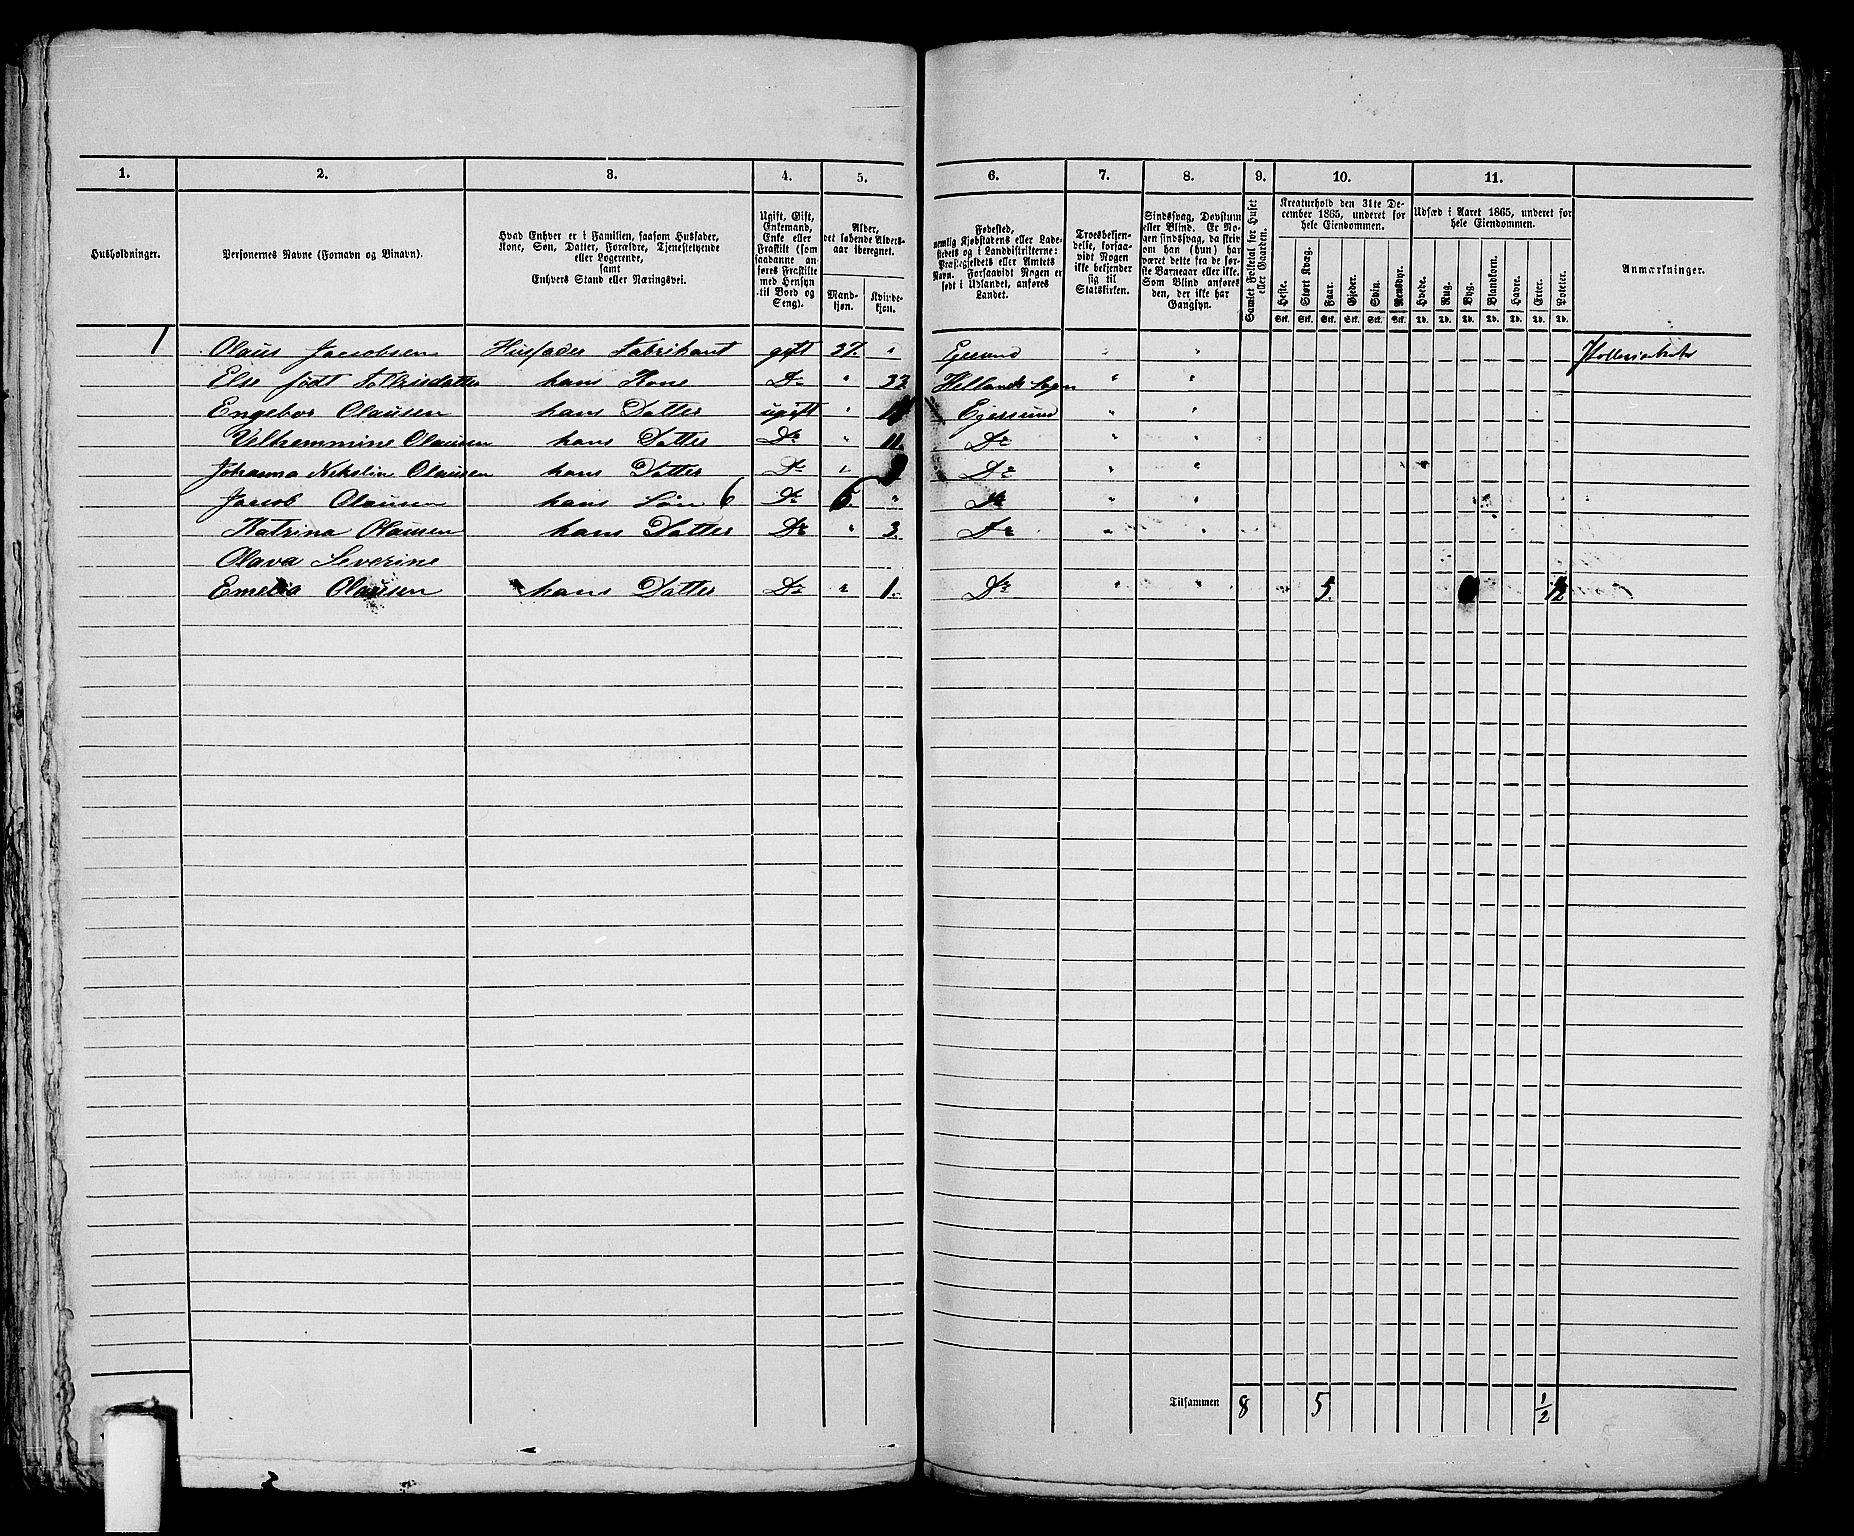 1. 2. 3. 4. 5. 6. 7. 8. 9. 10. 11.
Husholdninger.
Personernes Navne (Fornavn og Binavn).
Hvad Enhver er i Familien, saasom Husfader,
Kone, Søn, Datter, Forældre, Tjenestetyende
eller Logerende,
samt
Enhvers Stand eller Næringsvei.
Ugift, Gift,
Enkemand,
Enke eller
Fraskilt (som
saadanne an-
føres Fraskilte
med Hensyn
til Bord og
Seng).
Alder,
det løbende Alders-
aar iberegnet.
Mand-
kjøn.
Kvinde-
kjøn.
Fødested,
nemlig Kjøbstadens eller Lade-
stedets og i Landdistrikterne:
Præstegjeldets eller Amtets
Navn. Forsaavidt Nogen er
født i Udlandet, anføres
Landet.
Troesbekjen-
delse, forsaa-
vidt Nogen
ikke bekjender
sig til
Statskirken.
Sindssvag, Døvstum
eller Blind. Er No-
gen sindssvag, da skriv
om han (hun) har
været dette fra de før-
ste Barneaar eller ikke.
Som Blind anføres
den, der ikke har
Gangsyn.
Samlet Folketal for Huset
eller Gaarden.
Kreaturhold den 31te De-
cember 1865, underet for
hele Eiendommen.
Heste. Stort Kvæg. Faar. Gjeder. Svin. Rensdyr.
Stk. Stk. Stk. Stk. Stk. Stk.
Udsæd i Aaret 1865, underet for
hele Eiendommen.
Hvede. Rug. Byg. Blandkorn. Havre. Erter. Poteter.
Td. Td. Td. Td. Td. Td. Td.
Anmærkninger.
1 Olaus Jacobsen Husfader Fabrikant gift 37. " Egersund " "
Else født hans Kone Do " Hellands Sogn " "
Engebor Olausen hans Datter ugift " Egersund " "
Velhemmine Olausen hans Datter Do " 11. Do " "
Johanna Olausen hans Datter Do " Do " "
Jacob Olausen hans Søn 6 Do 6. " Do " "
Katrina Olausen hans Datter Do " 3. Do " "
Olava Severine
Emelia Olausen hans Datter Do " 1. Do " " 5. 1/2
Tilsammen 8 5 1/2